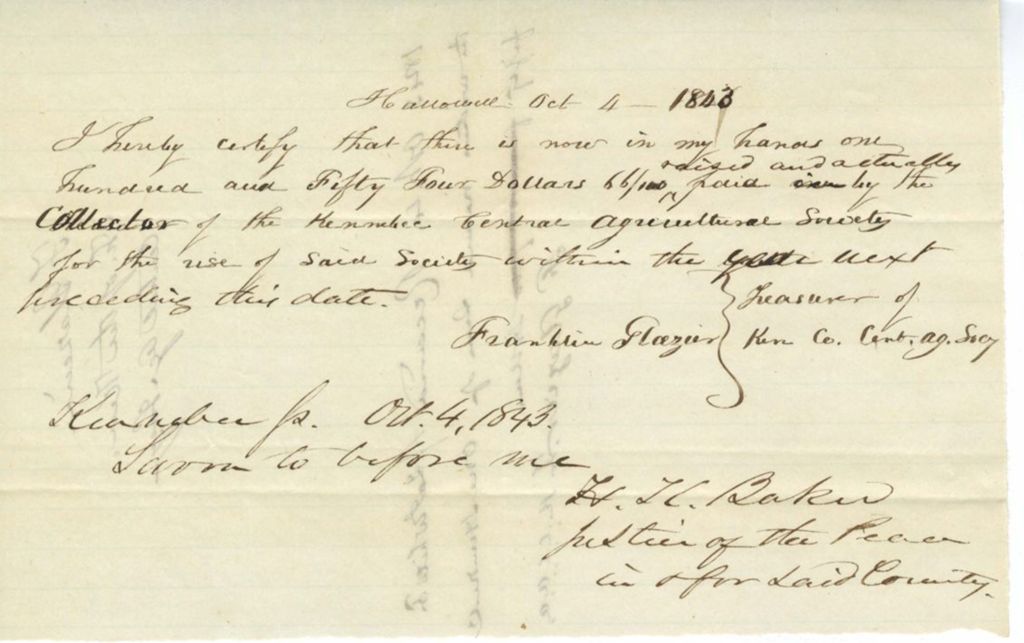 Hallowell Oct 4 - 1843
I hereby certify that there is now in my hands one
hundred and Fifty Four Dollars 66/100 raised and actually paid by the
Collector of the Kennebec Central Agricultural Society
for the use of Said Society within the year next
preceding this date.
Franklin Glazier } Treasurer of
Ken Co. Cent. Ag. Socy
Kennebec ss. Oct. 4, 1843.
Sworn to before me
H. K. Baker
Justice of the Peace
in & for said County.